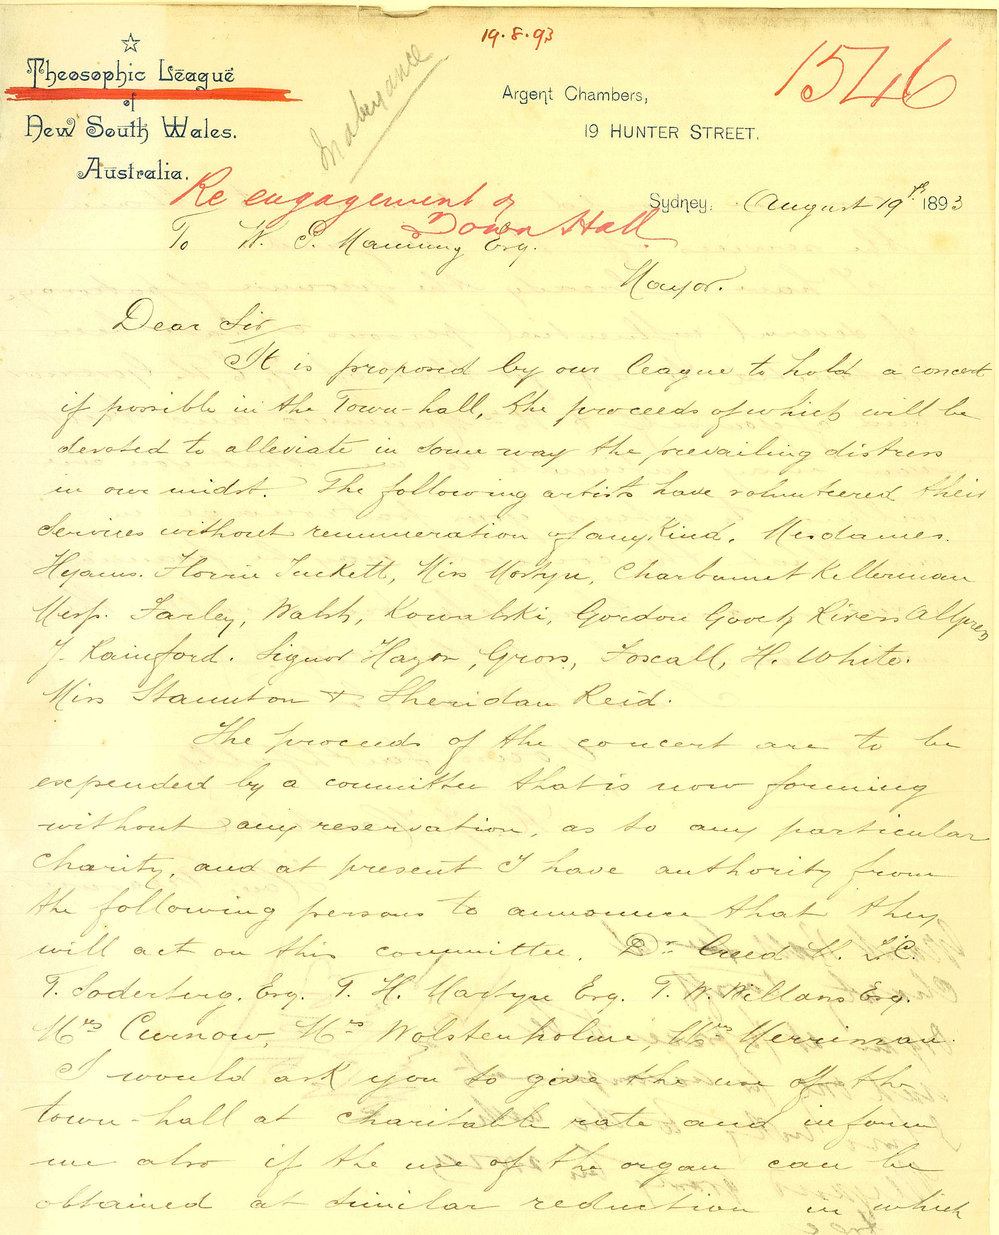 19.8.93
1546
Theosophic League
of
New South Wales.
Australia.
In abeyance
Argent Chambers,
19 HUNTER STREET.
Re engagement of
Town Hall
Sydney. August 19th 1893
To W. P. Manning Esq.
Mayor.
Dear Sir
It is proposed by our league to hold a concert
if possible in the Town-hall, the proceeds of which will be
devoted to alleviate in some way the prevailing distress
in our midst. The following artists have volunteered their
services without remuneration of any kind. Mesdames.
Hyams. Florrie Tackett, Miss Mostyn, Charbonnet Kellerman
Messs. Farley, Walsh, Kowalski, Gordon Gooch, Rivers Allpress
J. Rainford. Signor Hazon, Gross, Foxall, H. White.
Miss Staunton & Sheridan Reid.
The proceeds of the concert are to be
expended by a committee that is now forming
without any reservation, as to any particular
charity, and at present I have authority from
the following persons to announce that they
will act on this committee. Dr Creed M.L.C.
T. Soderberg. Esq. T. H. Martyn Esq. T. W. Willans Esq.
Mrs Curnow, Mrs Wolstenholme, Mrs Merriman.
I would ask you to give the use off the
town-hall at charitable rate and inform
me also if the use of the organ can be
obtained at similar reduction in which